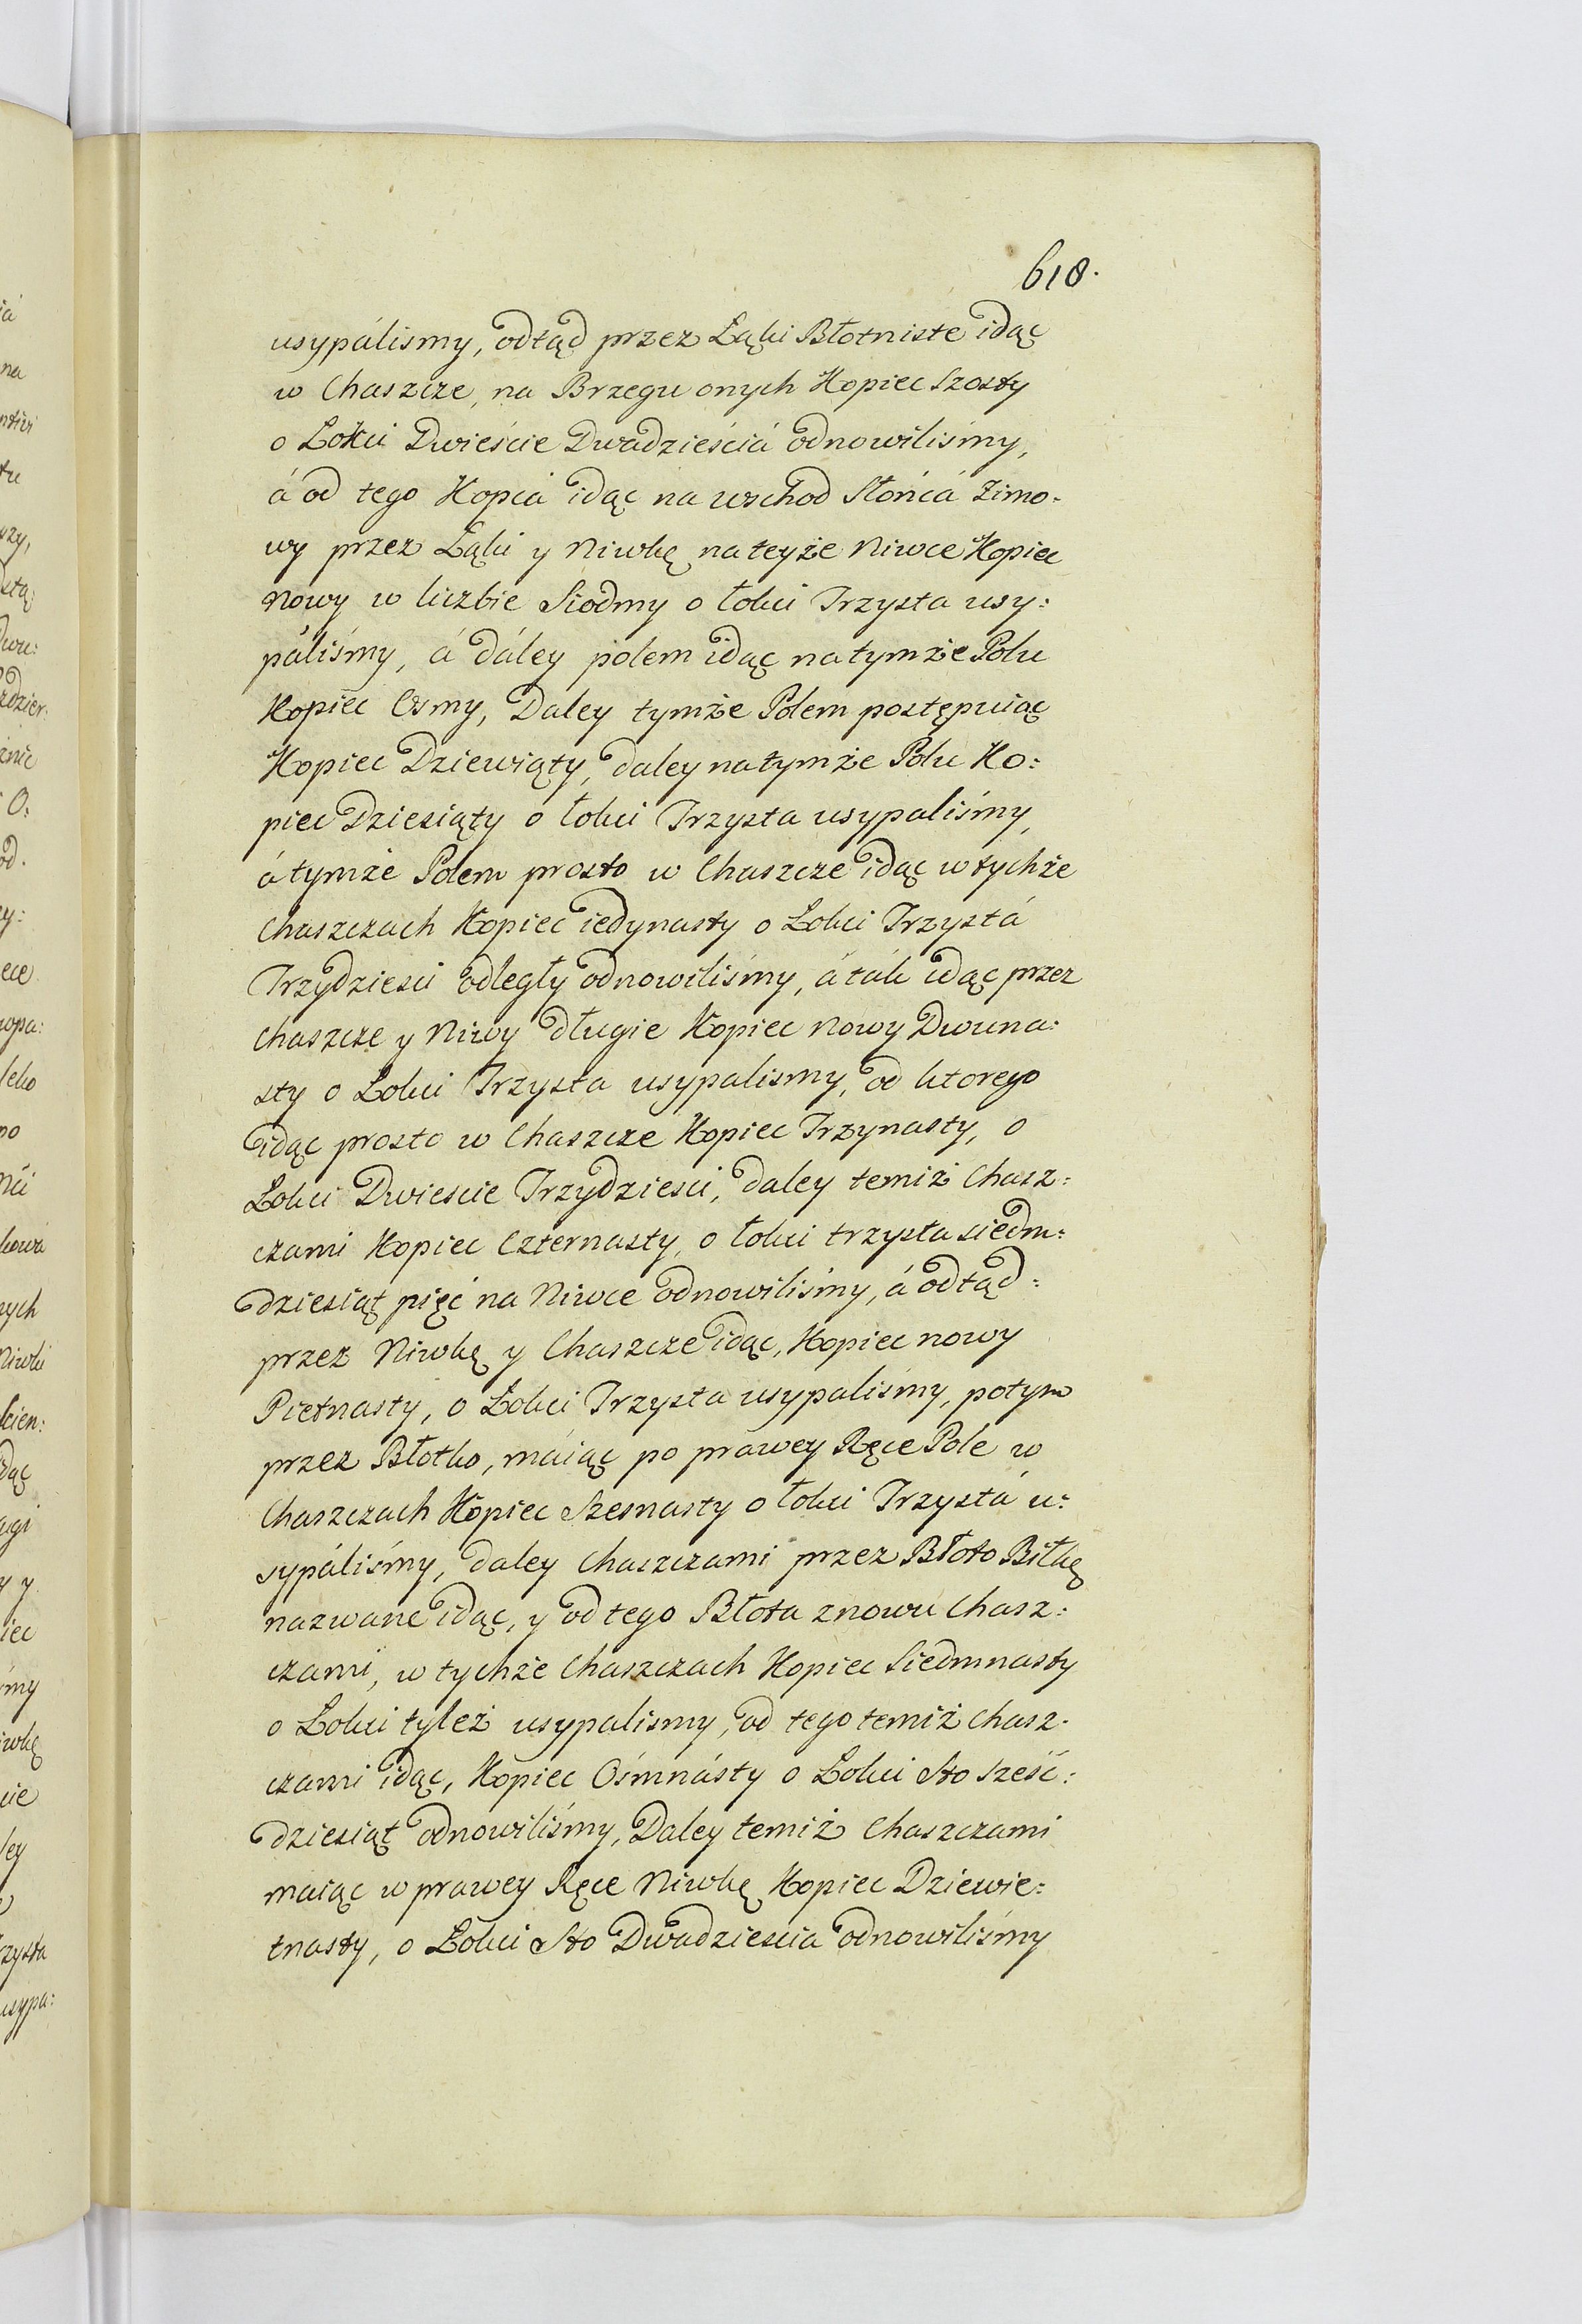 618.
usypálismy, odtąd przez Łąki Błotniste idąc
w Chaszcze, na Brzegu onych Kopiec Szosty
o Łokci Dwieście Dwadzieściá odnowiliśmy,
á od tego Kopcá idąc na wschod Słońcá Zimo-
wy przez Łąki y Niwkę na teyże Niwce Kopiec
Nowy w liczbie Siodmy o łokci Trzysta usy:
páliśmy, á dáley polem idąc na tymże Polu
Kopiec Osmy, Daley tymże Polem postępuiąc
Kopiec Dziewiąty, daley na tymże Polu Ko:
piec Dziesiąty o łokci Trzysta usypaliśmy,
á tymże Polem prosto w Chaszcze idąc w tychże
Chaszczach Kopiec iedynasty o Łokci Trzystá
Trzydziesci odległy odnowiliśmy, á ták idąc przez
Chaszcze y Niwy długie Kopiec Nowy Dwuna:
sty o Łokci Trzysta usypalismy, od ktorego
idąc prosto w Chaszcze Kopiec Trzynasty, o
Łokci Dwiescie Trzydziesci, daley temiż Chasz:
czami Kopiec Czternasty, o łokci trzysta siedm:
dziesiąt pięć na Niwce odnowiliśmy, á odtąd:
przez Niwkę y Chaszcze idąc, Kopiec nowy
Pietnasty, o Łokci Trzysta usypaliśmy, potym
przez Błotko, máiąc po prawey Ręce Pole w
Chaszczach Kopiec Szesnasty o łokci Trzystá u:
sypáliśmy, daley Chaszczami przez Błoto Bitkę
nazwane idąc, y od tego Błota znowu Chasz:
czami, w tychże Chaszczach Kopiec Siedmnasty
o Łokci tyleż usypalismy, od tego temiż Chasz-
czami idąc, Kopiec Ośmnásty o Łokci Sto sześć:
dziesiąt odnowiliśmy, Daley temiż Chaszczami
maiąc w prawey Ręce Niwkę Kopiec Dziewie:
tnasty, o Łokci Sto Dwadziescia odnowiliśmy